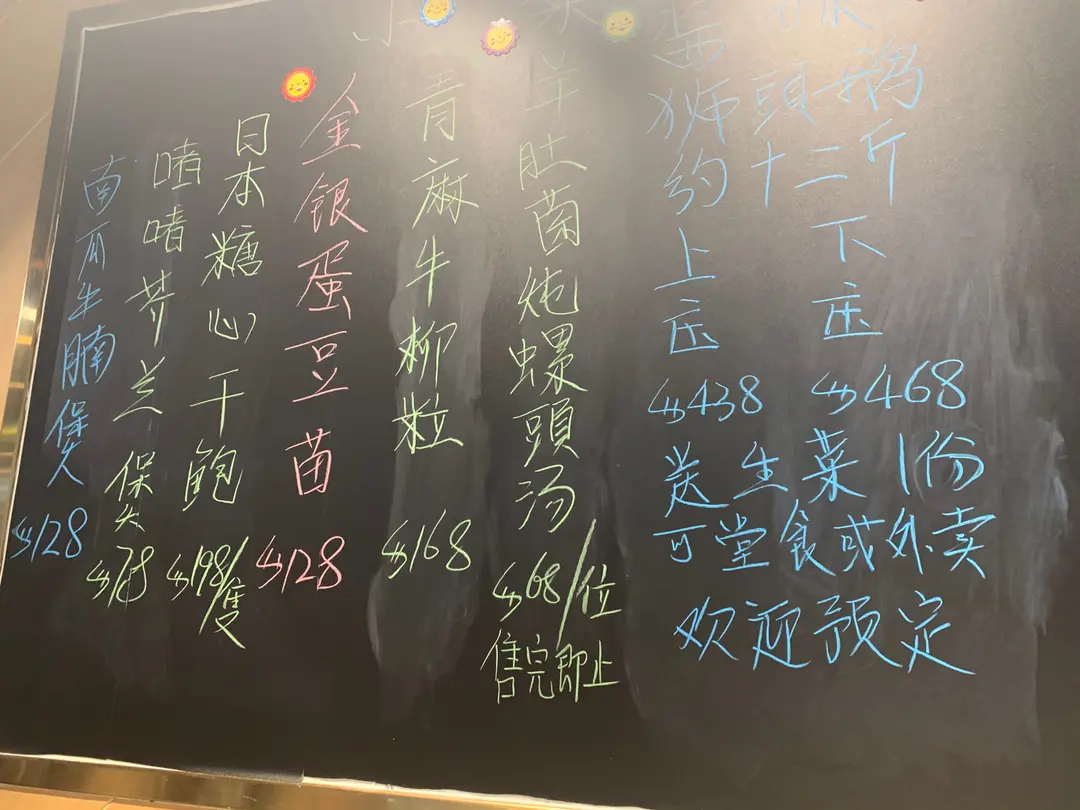 狮頭鹅
约十二斤
上庄 下庄
$438 $468
送生菜1份
可堂食或外卖
欢迎预定
羊肚菌炖螺頭汤
$68/位
售完即止
青麻牛柳粒
$168
金银蛋豆苗
$128
日本糖心干鲍
$198/隻
啫啫芥兰煲
$78
南瓜牛腩煲
$128